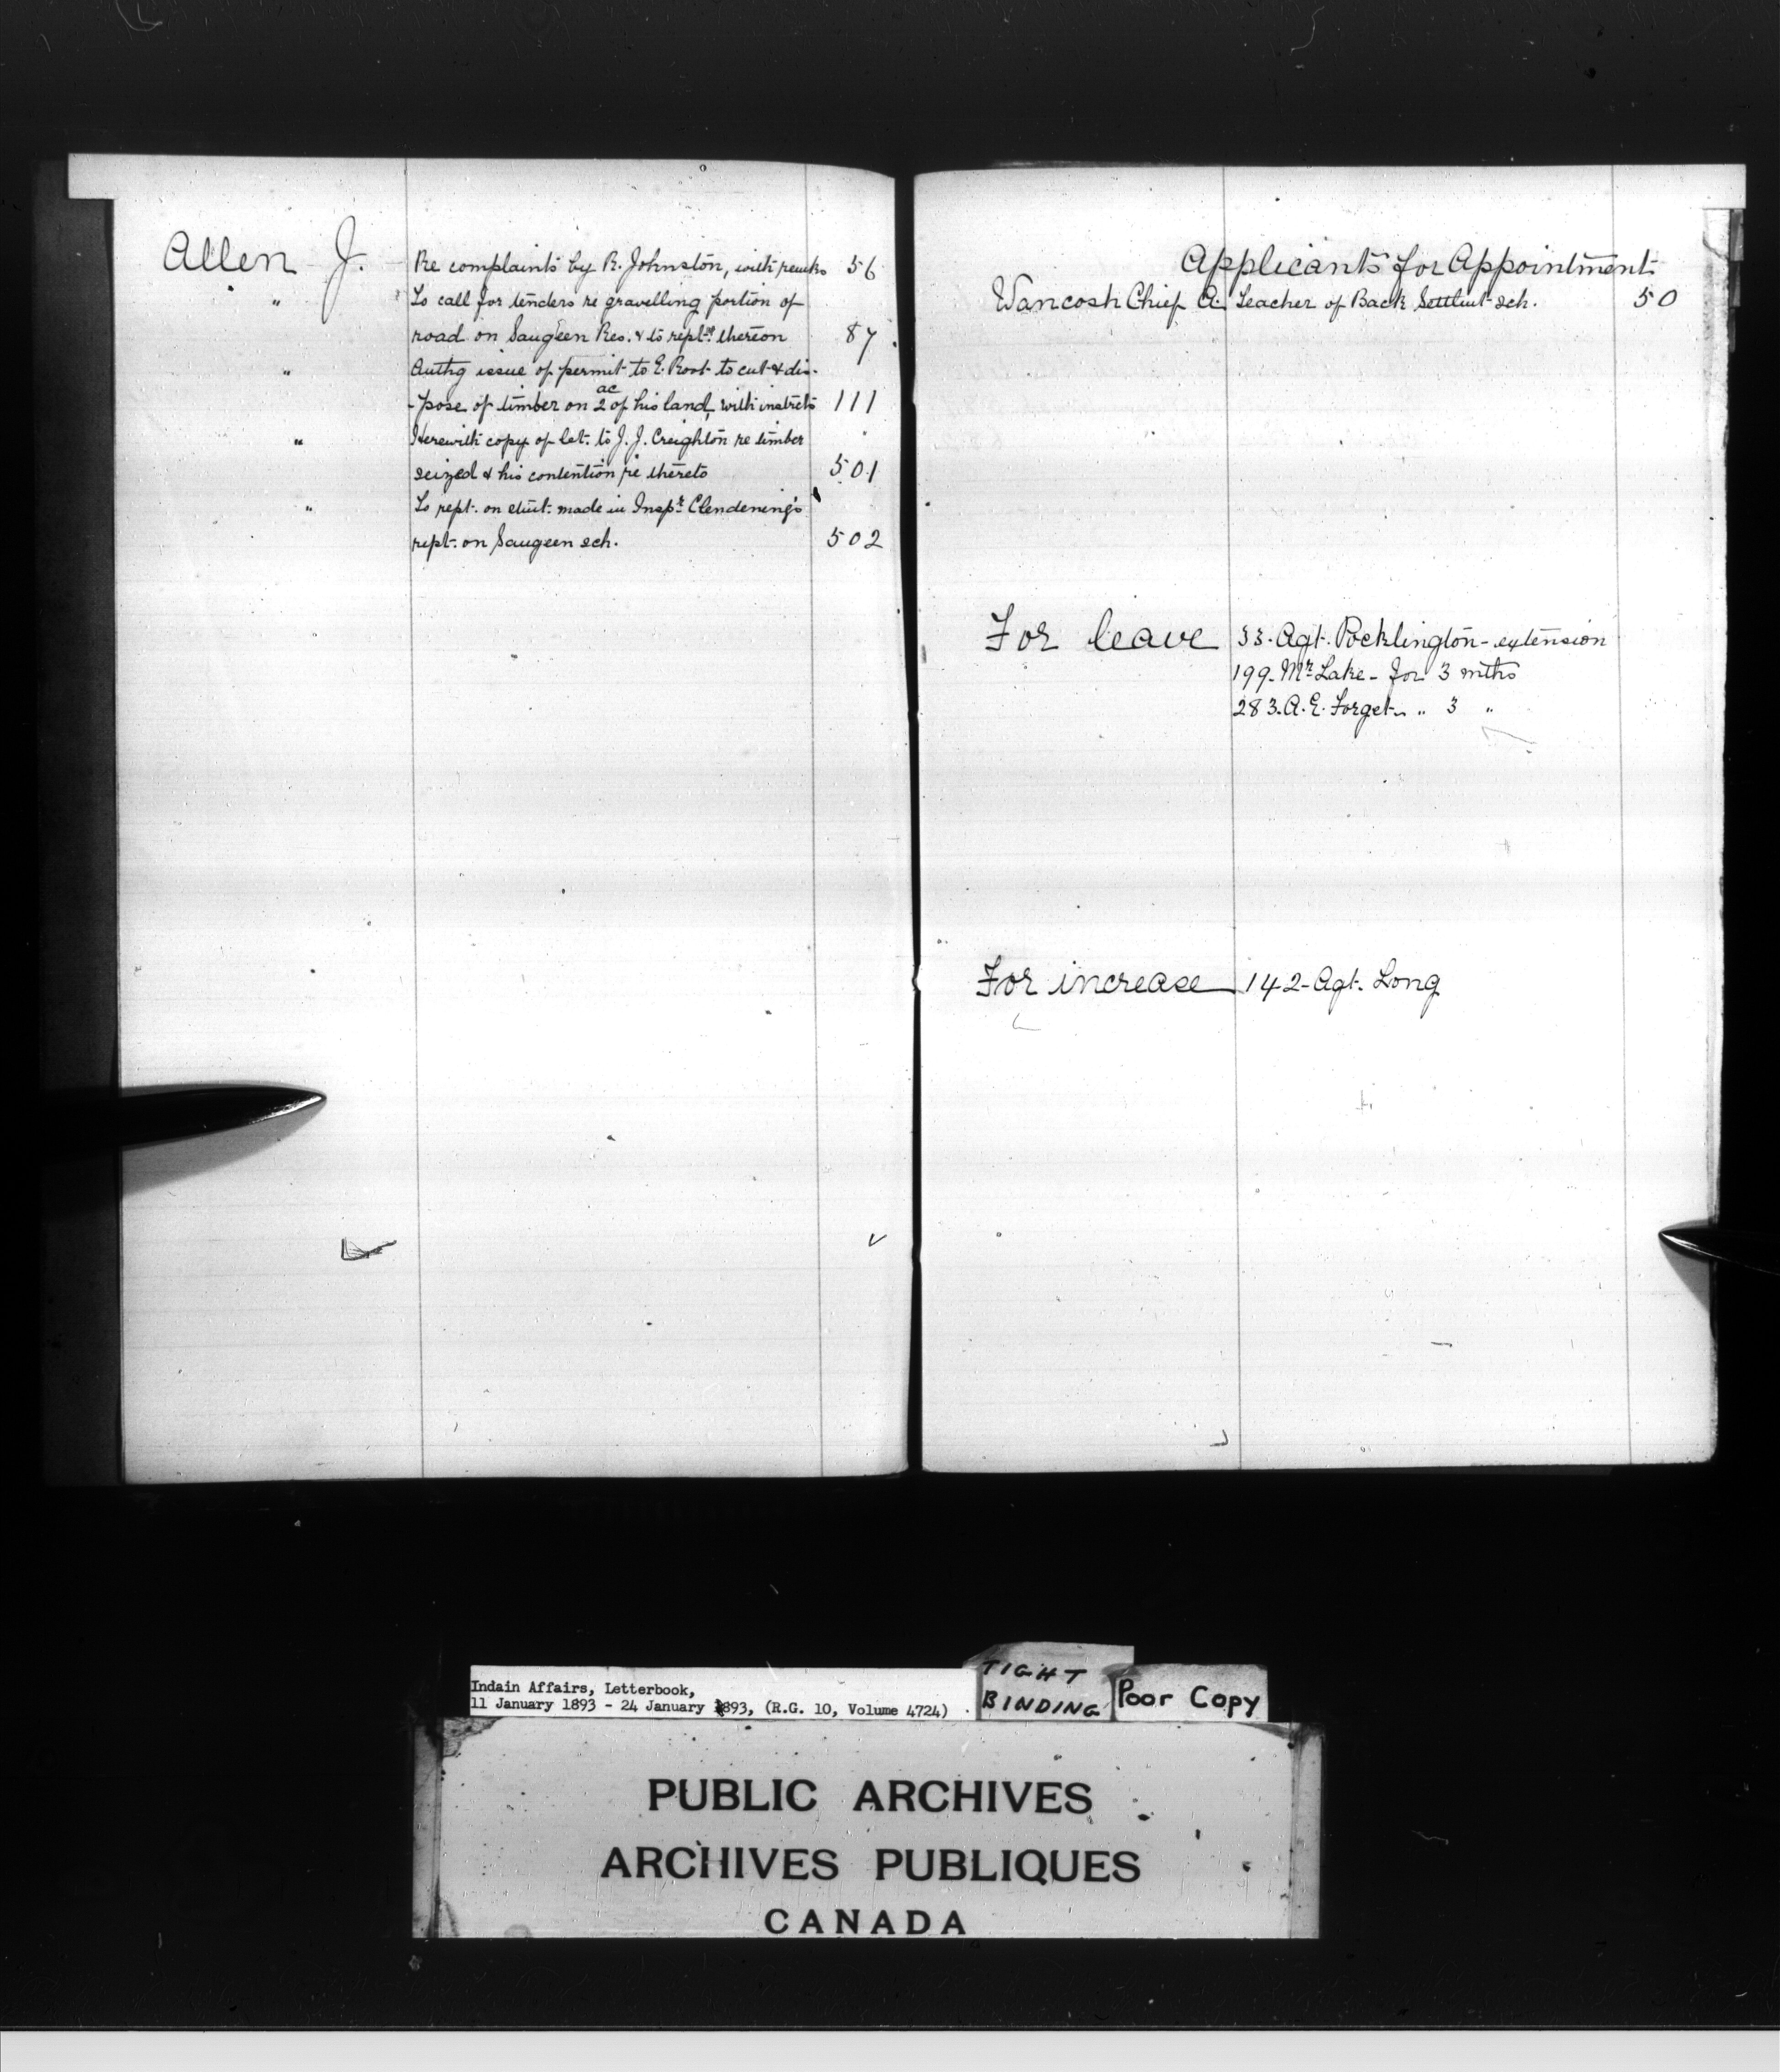 Allen J. Re complaints by R. Johnston, with remks 56
" To call for tenders re gravelling portion of
road on Saugeen Res. & to rept. thereon 87
" Authg issue of permit to E. Root to cut & dis-
-pose of timber on 2 ac of his land, with instrcts 111
" Herewith copy of let. to J. J. Creighton re timber
seized & his contention re thereto 501
" To rept. on stmt. made in Inspr. Clendening's
rept. on Saugeen sch. 502
Applicants for Appointment
Wancosh Chief A. Teacher of Back Settlmt sch. 50
For leave 33. Agt. Pocklington - extension
199. Mr. Lake - for 3 mths
283. A. E. Forget - " 3 "
For increase 142 - Agt. Long
Indain Affairs, Letterbook,
11 January 1893 - 24 January 1893, (R.G. 10, Volume 4724)
TIGHT
BINDING
Poor Copy
PUBLIC ARCHIVES
ARCHIVES PUBLIQUES
CANADA